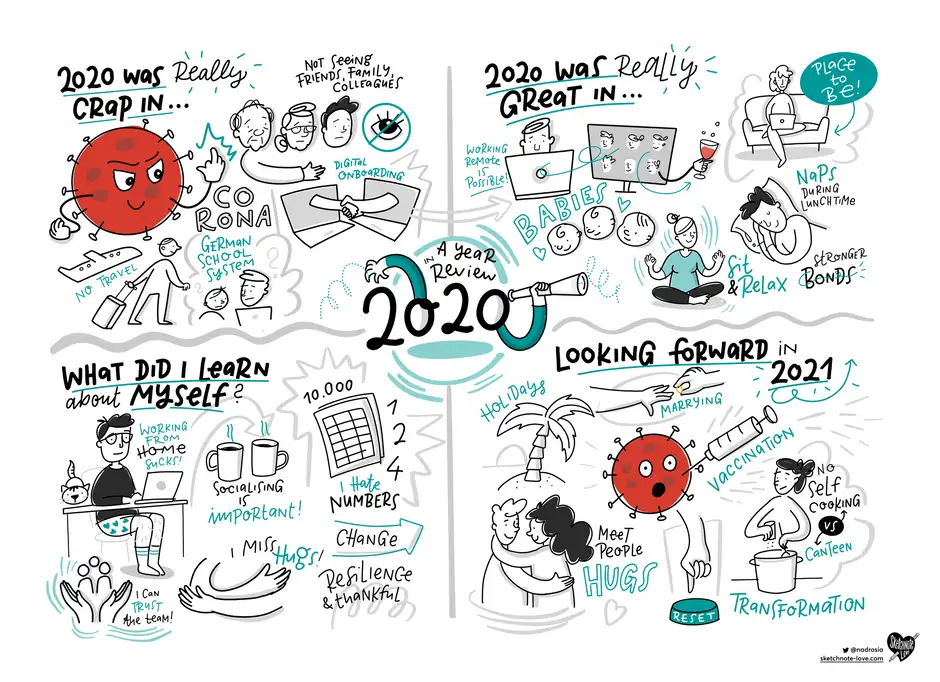 2020 was Really
CRAP IN...
NOT SEEING
FRIENDS, FAMILY,
COLLEAGUES
DIGITAL
ONBOARDING
CO
RONA
NO TRAVEL
GERMAN
SCHOOL
SYSTEM
2020 was Really
GREAT IN...
WORKING
REMOTE
IS
POSSIBLE!
PLACE
to
BE!
BABIES
NAPS
DURING
LUNCHTIME
Sit
& RELAX
STRONGER
BONDS
IN A YEAR
REVIEW
2020
WHAT DID I LEARN
about MYSELF?
WORKING
FROM
HOME
SUCKS!
SOCIALISING
IS
important!
10.000
1
2
4
I Hate
NUMBERS
I MISS Hugs!
CHANGE
RESILIENCE
& thankful
I CAN
TRUST
the team!
LOOKING FORWARD IN
2021
HOLIDAYS
MARRYING
VACCINATION
MEET
PEOPLE
HUGS
RESET
NO
SELF
COOKING
VS
CANTEEN
TRANSFORMATION
@nadrosia
sketchnote-love.com
Sketchnote
Love